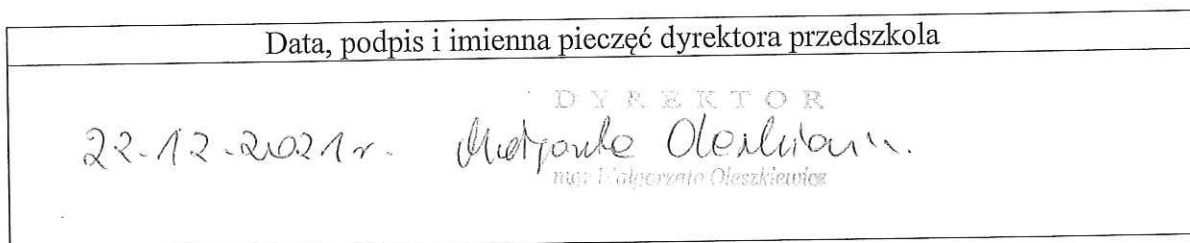 Data, podpis i imienna pieczęć dyrektora przedszkola
DYREKTOR
22.12.2021r. Małgorzata Oleszkiewicz
mgr Małgorzata Oleszkiewicz